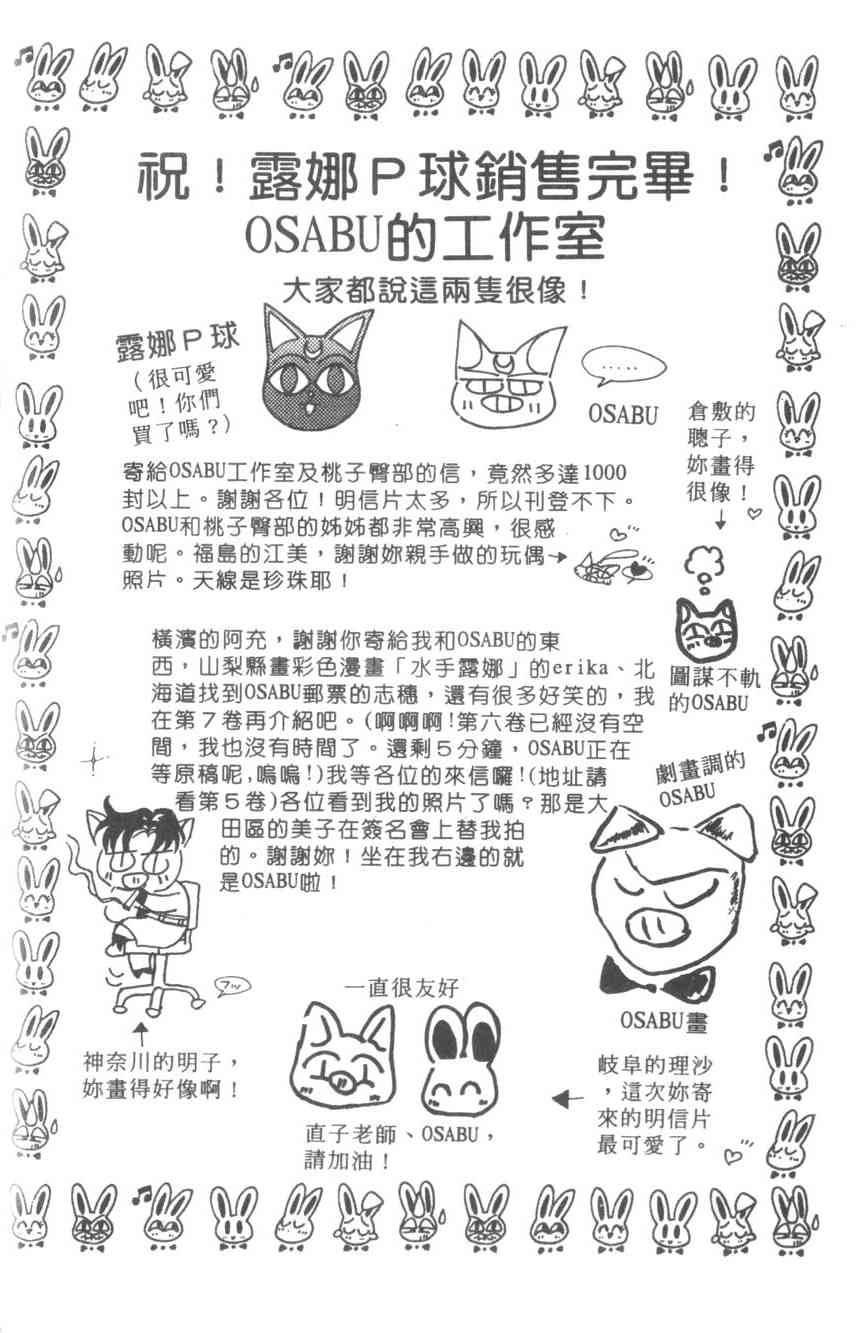 祝!露娜P球銷售完畢!
OSABU的工作室
大家都說這兩隻很像!
露娜P球
(很可愛
吧!你們
買了嗎?)
......
OSABU
倉敷的
聰子,
妳畫得
很像!
寄給OSABU工作室及桃子臀部的信,竟然多達1000
封以上。謝謝各位!明信片太多,所以刊登不下。
OSABU和桃子臀部的姊姊都非常高興,很感
動呢。福島的江美,謝謝妳親手做的玩偶→
照片。天線是珍珠耶!
圖謀不軌
的OSABU
橫濱的阿充,謝謝你寄給我和OSABU的東
西,山梨縣畫彩色漫畫「水手露娜」的erika、北
海道找到OSABU郵票的志穗,還有很多好笑的,我
在第7卷再介紹吧。(啊啊啊!第六卷已經沒有空
間,我也沒有時間了。還剩5分鐘,OSABU正在
等原稿呢,嗚嗚!)我等各位的來信囉!(地址請
看第5卷)各位看到我的照片了嗎?那是大
田區的美子在簽名會上替我拍
的。謝謝妳!坐在我右邊的就
是OSABU啦!
劇畫調的
OSABU
OSABU畫
フッ
神奈川的明子,
妳畫得好像啊!
一直很友好
直子老師、OSABU,
請加油!
岐阜的理沙
,這次妳寄
來的明信片
最可愛了。